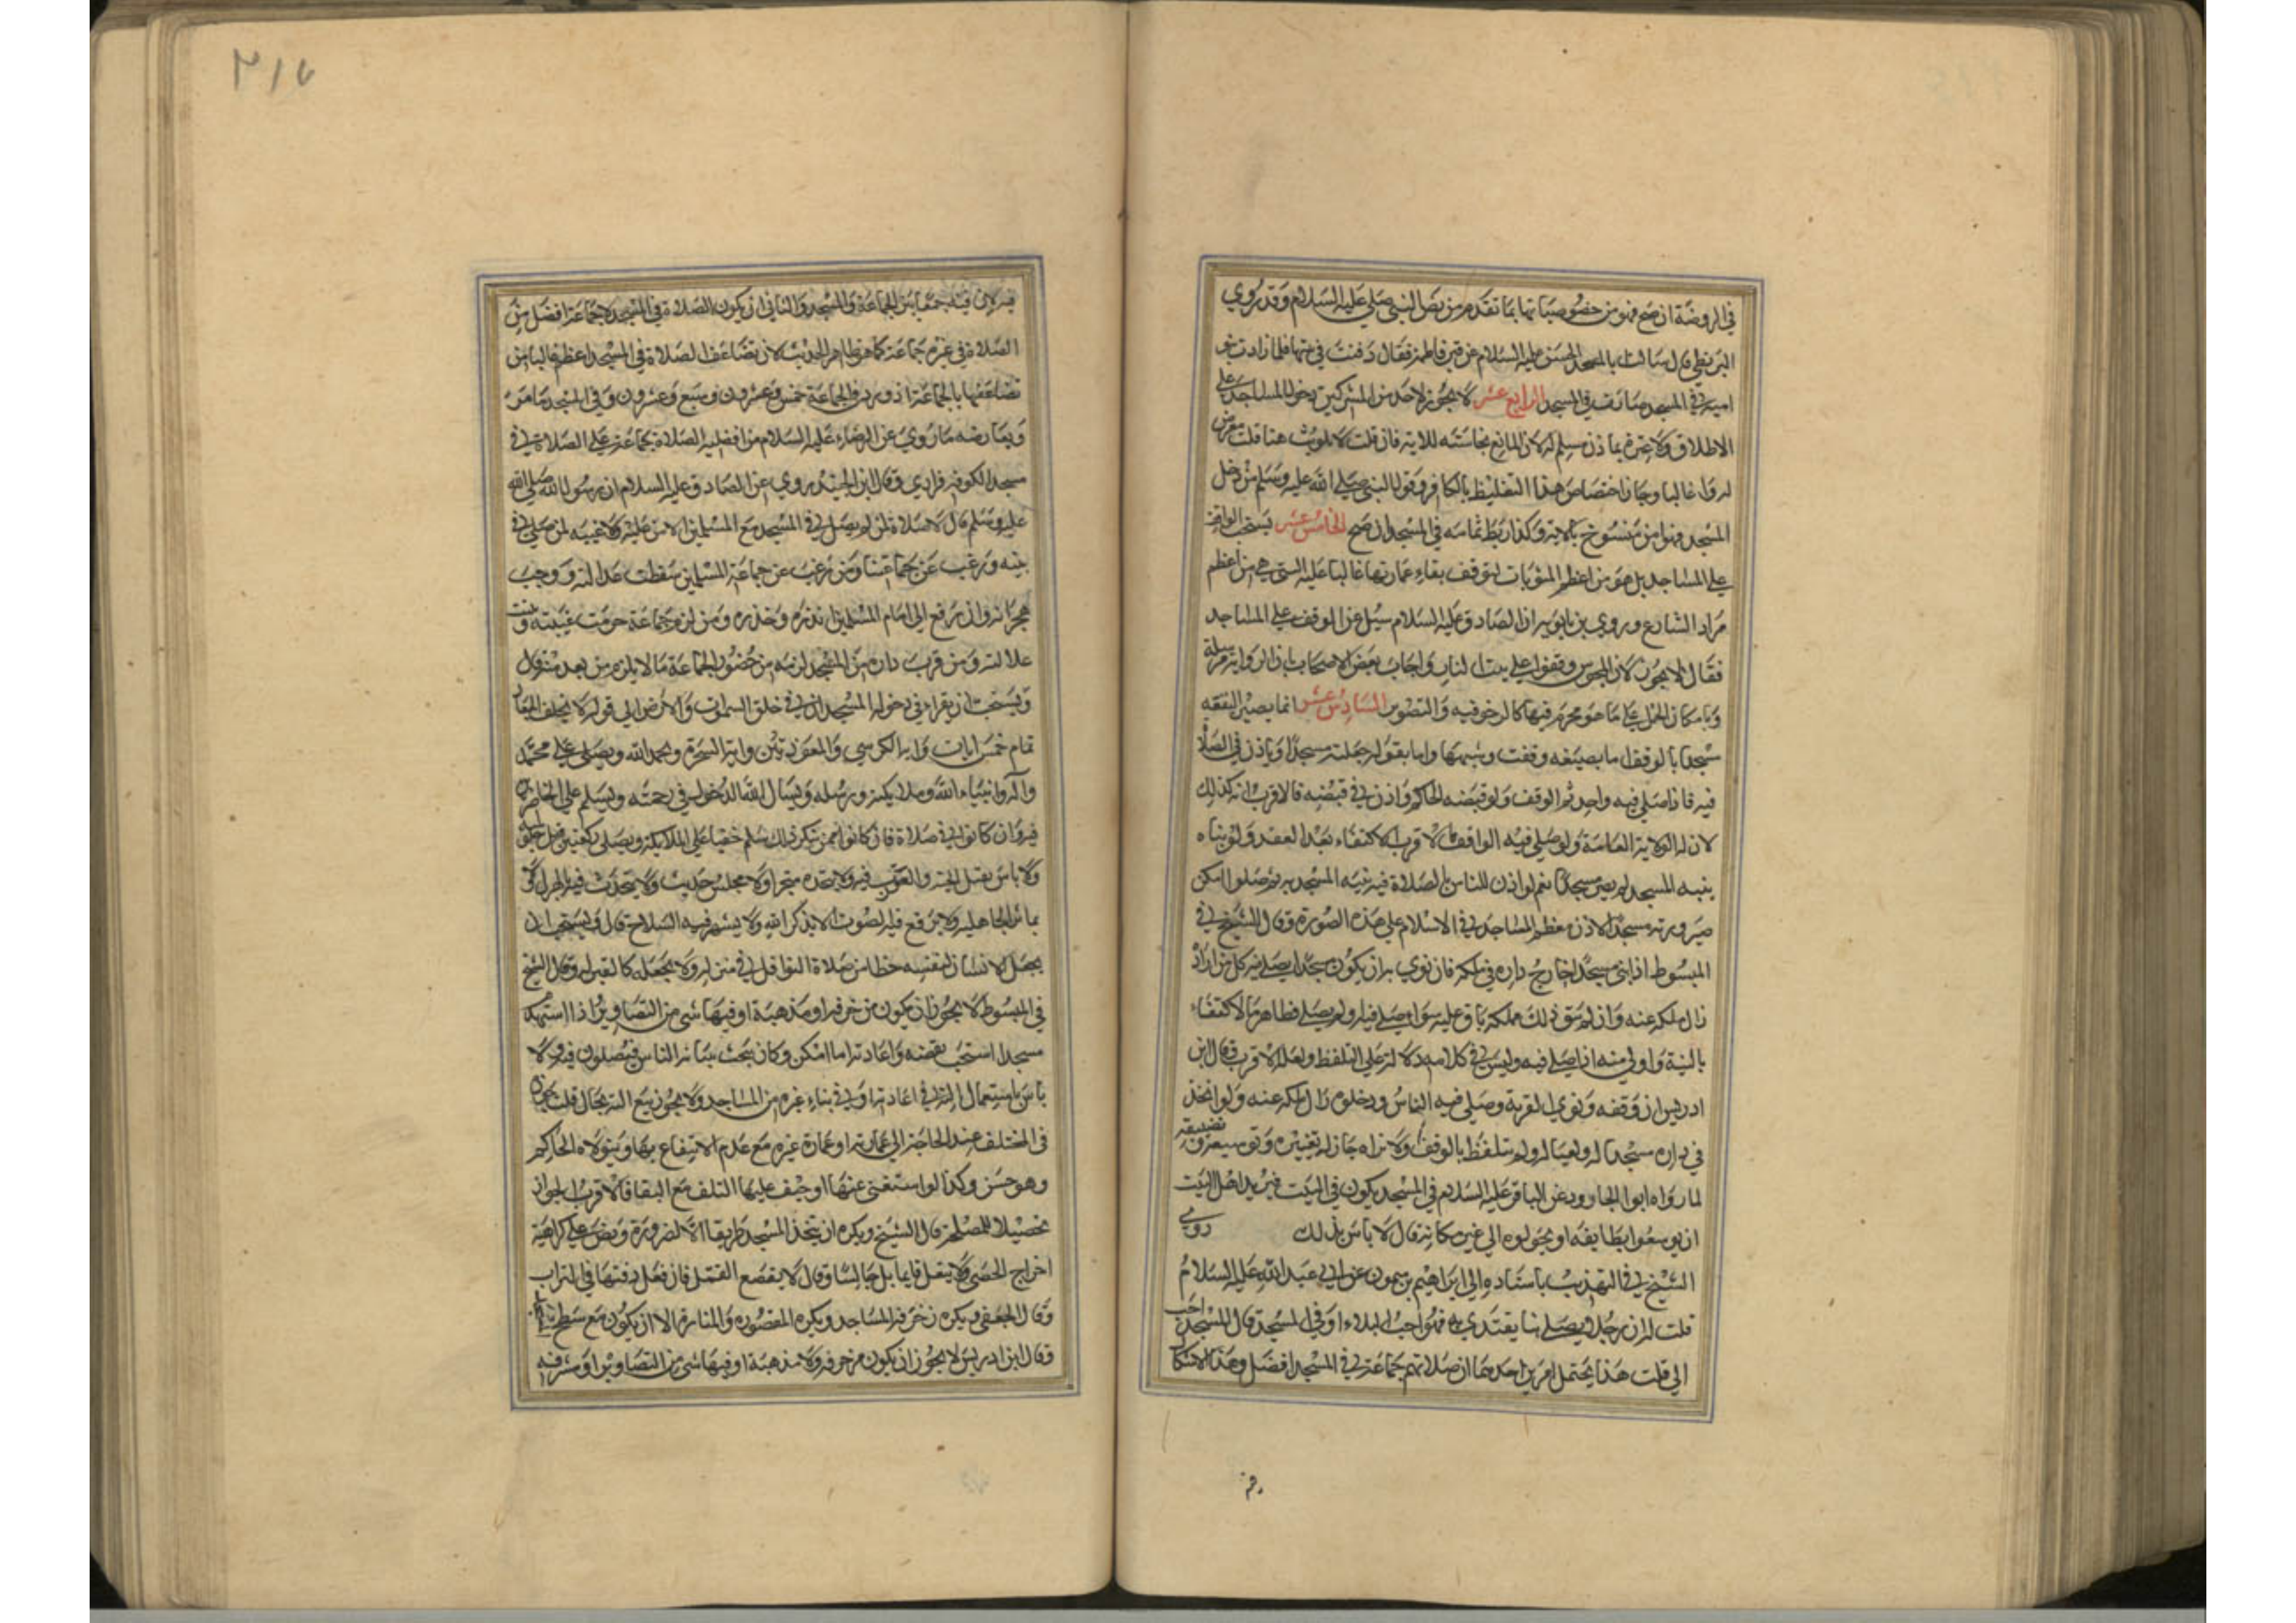 في الروضة ان صح فهو من خصوصياتها بما تقدم من نص النبي صلى عليه السلام وقد روي
البزنطي قال سالت ابا الحسن عليه السلام عن قبر فاطمة فقال دفنت في بيتها فلما زادت بنو
امية في المسجد صارت في المسجد الرابع عشر لا يجوز لاحد من المشركين دخول المساجد على
الاطلاق ولا عبرة باذن مسلم له لان المانع نجاسته للاية فان قلت لا تلويث هنا قلت معرض
له غالبا وجاز اختصاص هذا التغليظ بالكافر وقول النبي صلى الله عليه وسلم من دخل
المسجد فهو امن منسوخ بالاية وكذا ربط ثمامه في المسجد ان صح الخامس عشر يستحب الوقف
على المساجد بل هو من اعظم المثوبات لتوقف بقاء عمارتها غالبا عليه التي هي من اعظم
مراد الشارع وروي بن بابويه ان الصادق عليه السلام سئل عن الوقف على المساجد
فقال لا يجوز لان المجوس وقفوا على بيت النار واجاب بعض الاصحاب بان الرواية مرسلة
وبامكان الحمل على ما هو محرم فيها كالزخرفه والتصوير السادس عشر انما يصير البقعه
مسجدا بالوقف اما بصيغه وقفت وشبهها واما بقوله جعلته مسجدا وياذن في الصلاة
فيه فاذا صلى فيه واحد تم الوقف ولو قبضه الحاكم او اذن في قبضه فالاقرب انه كذلك
لان له الولاية العامة ولو صلى فيه الواقف فالاقرب الاكتفاء بعد العقد ولو بناه
بنية المسجد لم يصر مسجدا نعم لو اذن للناس بالصلاة فيه بنية المسجديه ثم صلوا امكن
صيرورته مسجدا لان معظم المساجد في الاسلام على هذه الصورة وقال الشيخ في
المبسوط اذا بنى مسجدا خارج داره في ملكه فان نوى به ان يكون مسجدا يصلي فيه كل من اراد
زال ملكه عنه وان لم ينو ذلك فملكه باق عليه سواء صلي فيه او لم يصل فظاهره الاكتفاء
بالنية واولى منه اذا صلي فيه وليس في كلامه دلالة على التلفظ ولعله الاقرب وقال ابن
ادريس ان وقفه ونوى القربة وصلى فيه الناس ودخلوه زال ملكه عنه ولو اتخذ
في داره مسجدا له ولعياله ولم يتلفظ بالوقف ولا نواه جاز له تغييره وتوسيعه وتضييقه
لما رواه ابو الجارود عن الباقر عليه السلام في المسجد يكون في البيت فيريد اهل البيت
ان يوسعوا بطايفه او يحولوه الى غير مكانه قال لا باس بذلك روى
الشيخ في التهذيب باسناده الى ابراهيم بن ميمون عن ابي عبد الله عليه السلام
قلت له ان رجلا يصلي بنا يقتدي به فهو احب اليك او في المسجد قال المسجد احب
الي قلت هذا يحتمل امرين احدهما ان صلاتهم جماعة في المسجد افضل وهذا لا
فيه لان فيه جمعا بين الجماعة والمسجد والثاني ان يكون الصلاة في المسجد لا جماعة افضل من
الصلاة في غيره جماعة كما هو ظاهر الحديث لان تضاعف الصلاة في المسجد اعظم غالبا من
تضاعفها بالجماعة اذ ورد في الجماعة خمس وعشرون وسبع وعشرون وفي المسجد ما مر
ويعارضه ما روي عن الرضاء عليه السلام من افضلية الصلاة جماعة على الصلاة في
مسجد الكوفه فرادى وقال ابن الجنيد روي عن الصادق عليه السلام ان رسول الله صلى الله
عليه وسلم قال لا صلاة لمن لم يصل في المسجد مع المسلمين الا من علة ولا غيبه لمن صلى في
بيته ورغب عن جماعتنا ومن رغب عن جماعة المسلمين سقطت عدالته ووجب
هجرانه وان رفع الى امام المسلمين انذره وحذره ومن لزم جماعة حرمت غيبته وثبتت
عدالته ومن قرب داره من المسجد لزمه من حضور الجماعة ما لا يلزم من بعد منه قال
ويستحب ان يقراء في دخوله المسجد ان في خلق السموات والارض الى قوله لا يخلف الميعاد
تمام خمس ايات واية الكرسي والمعوذتين واية السخرة ويحمد الله ويصلي على محمد
واله وانبياء الله وملايكته ورسله ويسال الله الدخول في رحمته ويسلم على الحاضرين
فيه وان كانوا في صلاة فان كانوا ممن ينكر ذلك سلم خفيا على الملايكة ويصلي ركعتين قبل جلوسه
ولا باس بقتل الحية والعقرب فيه ولا يتخذه متجرا ولا مجلس حديث ولا يتحدث فيه بالهزل ولا
بماثر الجاهلية ولا يرفع فيه الصوت الا بذكر الله ولا يشهر فيه السلاح قال ويستحب ان
يجعل الانسان لنفسه حظا من صلاة النوافل في منزله ولا يجعله كالقبر له وقال الشيخ
في المبسوط لا يجوز ان يكون مزخرفة او مذهبة او فيها شي من التصاوير اذا استهدم
مسجدا استحب نقضه واعادته اما امكن وكان بحيث ينتابه الناس فيصلون فيه ولا
باس باستعمال الته في اعادته او في بناء غيره من المساجد ولا يجوز بيع الته بحال قلت يجوز
في المختلف عند الحاجة الى عمارته او عمارة غيره مع عدم الانتفاع بها ويتولاه الحاكم
وهو حسن وكذا لو استغنى عنها او خيف عليها التلف مع البقا فالاقرب الجواز
تحصيلا للمصلحة قال الشيخ ويكره ان يتخذ المسجد طريقا الا لضرورة ونص على كراهية
اخراج الحصى ولا ينعل قايما بل جالسا وقال لا يقصع القمل فان فعل دفنها في التراب
وقال الجعفي ويكره زخرفة المساجد ويكره المقصوره والمنارة الا ان يكون مع سطح
وقال ابن ادريس لا يجوز ان يكون مزخرفه ولا مذهبة او فيها شي من التصاوير او مشرفه